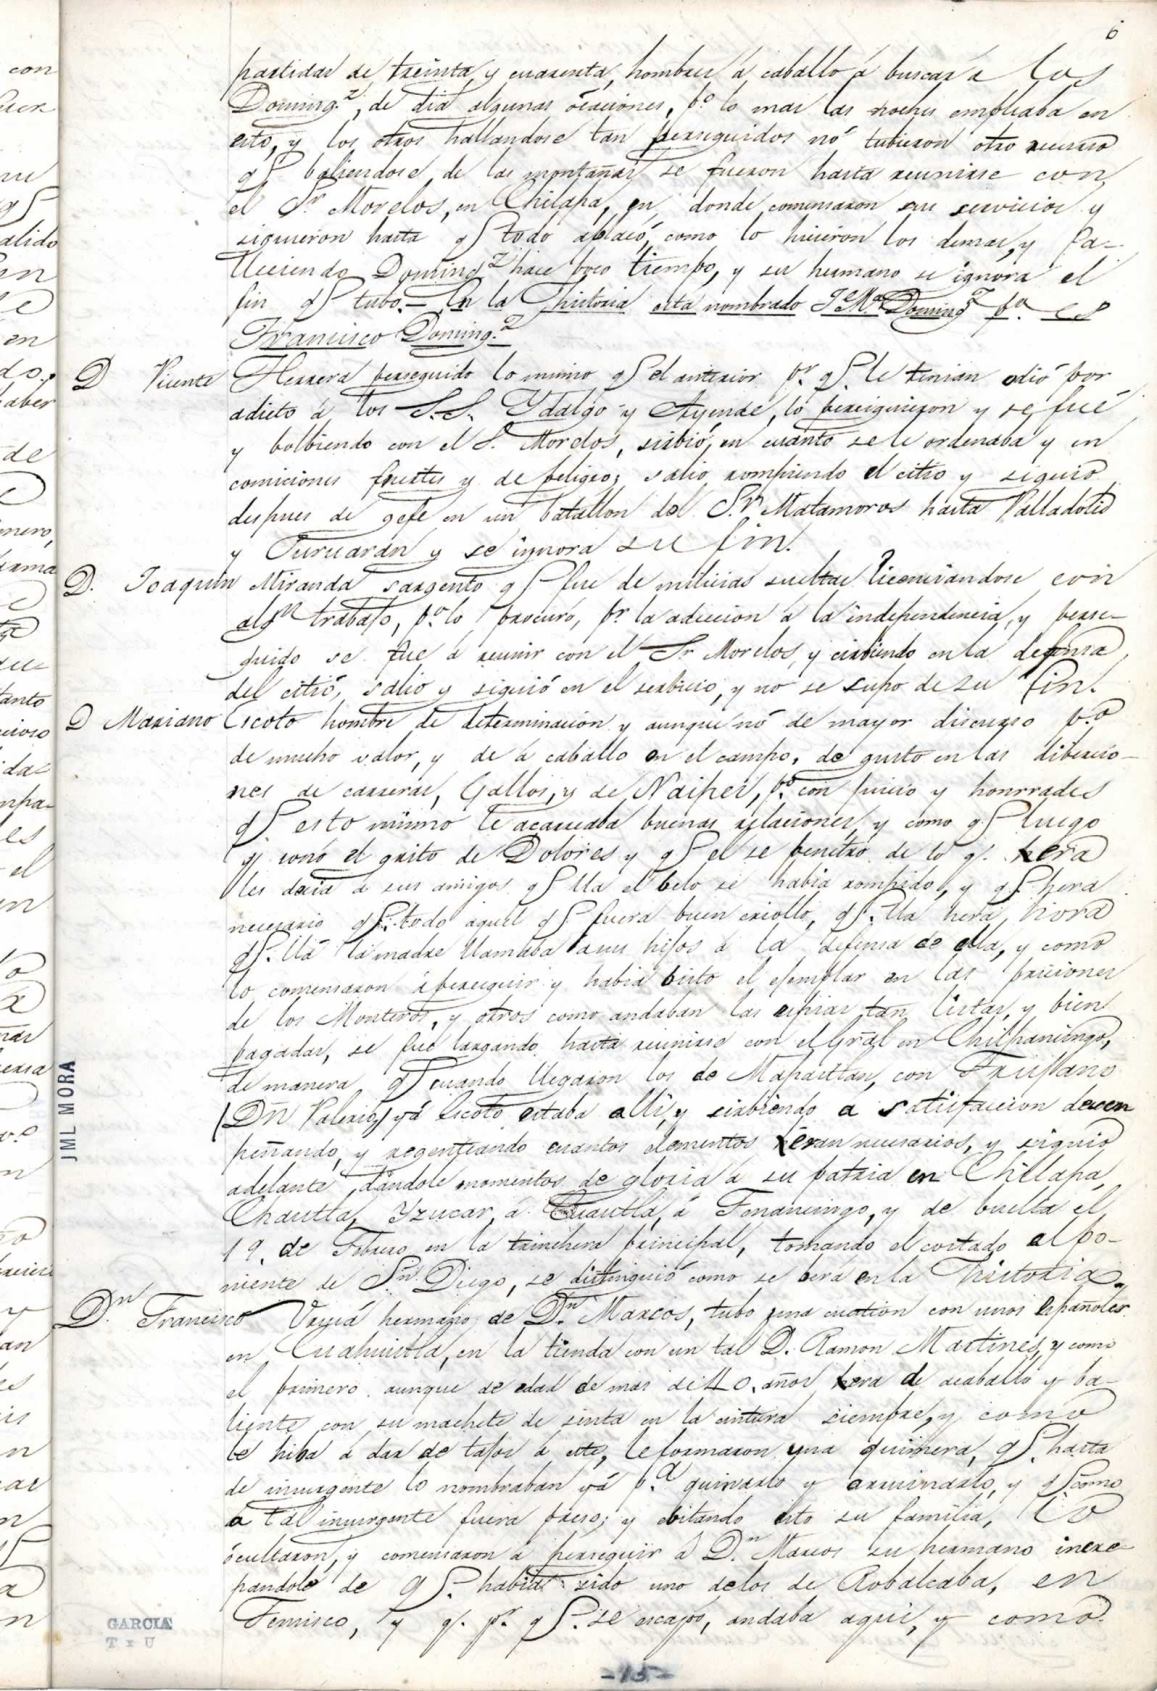 6
partidas de treinta y cuarenta hombres á caballo á buscar a los
Doming.z, de dia algunas ócaciones, p.o lo mas las noches empleaba en
esto, y los otros hallandose tan perseguidos nó tubieron otro recurso
q.e baliendose de las montañas se fueron hasta reunirse con
el S.r Morelos, en Chilapa, en donde comensaron sus servicios y
siguieron hasta q.e todo acabó, como lo hicieron los demas, y fa-
lleciendo Doming.z hace poco tiempo, y su hermano se ignora el
fin q.e tubo.= En la historia esta nombrado J.e M.a Doming.z p.o es
Francisco Doming.z
D Vicente Herrera perseguido lo mismo q.e el anterior p.r q.e le tenian odió por
adicto á los S.S. Ydalgo y Ayende, lo persiguieron y se fué
y bolbiendo con el S. Morelos, sirbió, en cuanto se le ordenaba y en
comiciones fuertes y de peligro; salio rompiendo el citio y siguió
despues de gefe en un batallon del S.r Matamoros hasta Valladolid
y Puruarán y se ignora su fin.
D. Joaquin Miranda sargento q.e fue de milicias sueltas licenciandose con
alg.n trabajo, p.o lo procuró, p.r la adiccion á la independencia, y perse-
guido se fue á reunir con el S.r Morelos, y cirbiendo en la defensa
del citió, salio y siguió en el serbicio, y no se supo de su fin.
D Mariano Escoto hombre de determinación y aunque nó de mayor discurso p.o
de mucho valor, y de á caballo en el campo, de gusto en las diberció-
nes de carreras, Gallos, y de Naipes, p.o con juicio y honrrades
q.e esto mismo le acarreaba buenas relaciones, y como q.e luego
q.e sonó el grito de Dolores y q.e el se penetró de lo q.e hera
les decia á sus amigos q.e lla el belo se habia rompido, y q.e hera
necesario q.e todo aquel q.e fuera buen criollo, q.e lla hera hora
q.e llá la madre llamaba á sus hijos á la defensa de ella, y como
lo comensaron á perseguir y habia bisto el ejemplar en las priciones
de los Monteros, y otros como andaban las espias tan listas, y bien
pagadas, se fue largando hasta reunirse con el Gral en Chilpancingo,
de manera q.e cuando llegaron los de Mapastlan, con Trujano
(Dn Valerio) yá Escoto estaba alli, y sirbiendo a satisfaccion decem
peñando, y regenteando cuantos elementos eran necesarios, y siguió
adelante dandole momentos de gloria á su patria en Chilapa,
Chautla, Yzucar, á Cuautla, á Tenancingo, y de buelta el
19. de Febrero en la trinchera principal, tomando el costado al po-
niente de Sn. Diego, se distinguió como se berá en la historia.
Dn. Francisco Vrejiá hermano de Dn. Marcos, tubo una cuestion con unos Españoles
en Cuahuistla, en la tienda con un tal D. Ramon Martines, y como
el primero aunque de edad de mas de 40. años hera de acaballo y ba-
liente con su machete de sinta en la cintura siempre, y como
le hiba á dar de tajos á este, le formaron una quimera, q.e hasta
de insurgente lo nombraban yá p.a quimarlo y arruinarlo, y q.e como
a tal insurgente fuera preso; y ebitando esto su familia, lo
ócultaron, y comensaron á perseguir á D.n Marcos su hermano incre-
pandole de q.e habia sido uno delos de Robalcaba, en
Temisco, y q.e p.r q.e se escapó, andaba aqui, y como
JML MORA
GARCIA
T x U
-15-